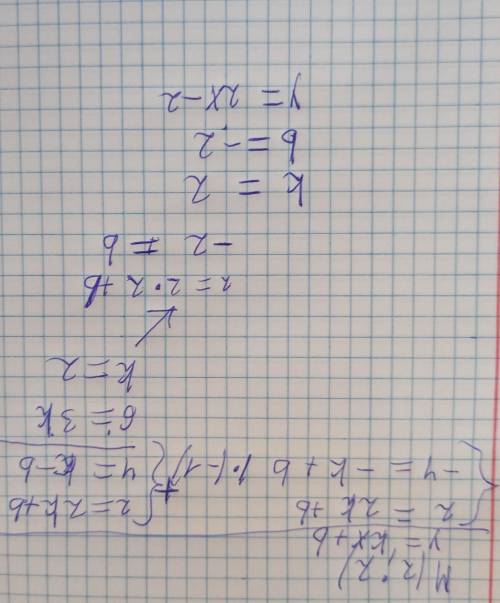 M(2;2)
y = kx + b
{ 2 = 2k + b
{ -4 = -k + b |·(-1)
+{ 2 = 2k + b
{ 4 = k - b
6 = 3k
k = 2
2 = 2·2 + b
-2 = b
k = 2
b = -2
y = 2x - 2